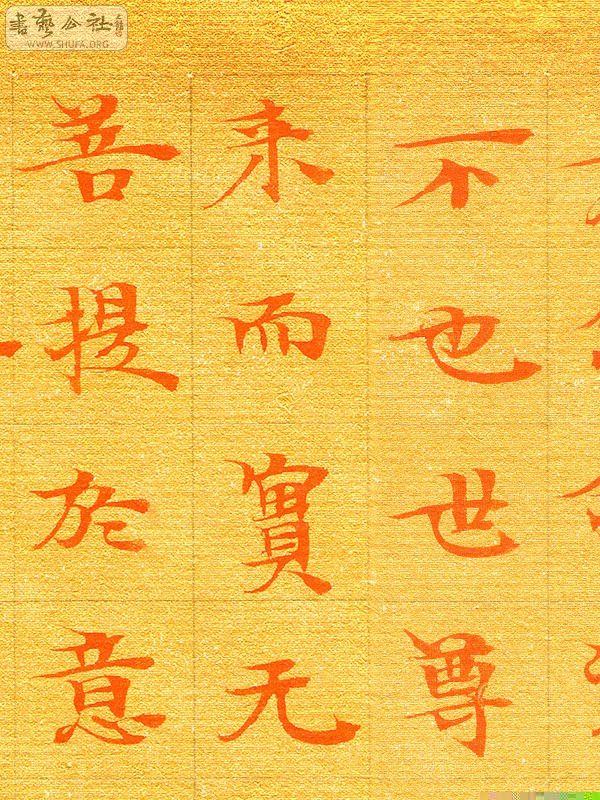 不也世尊
来而實无
菩提於意
書藝公社
WWW.SHUFA.ORG